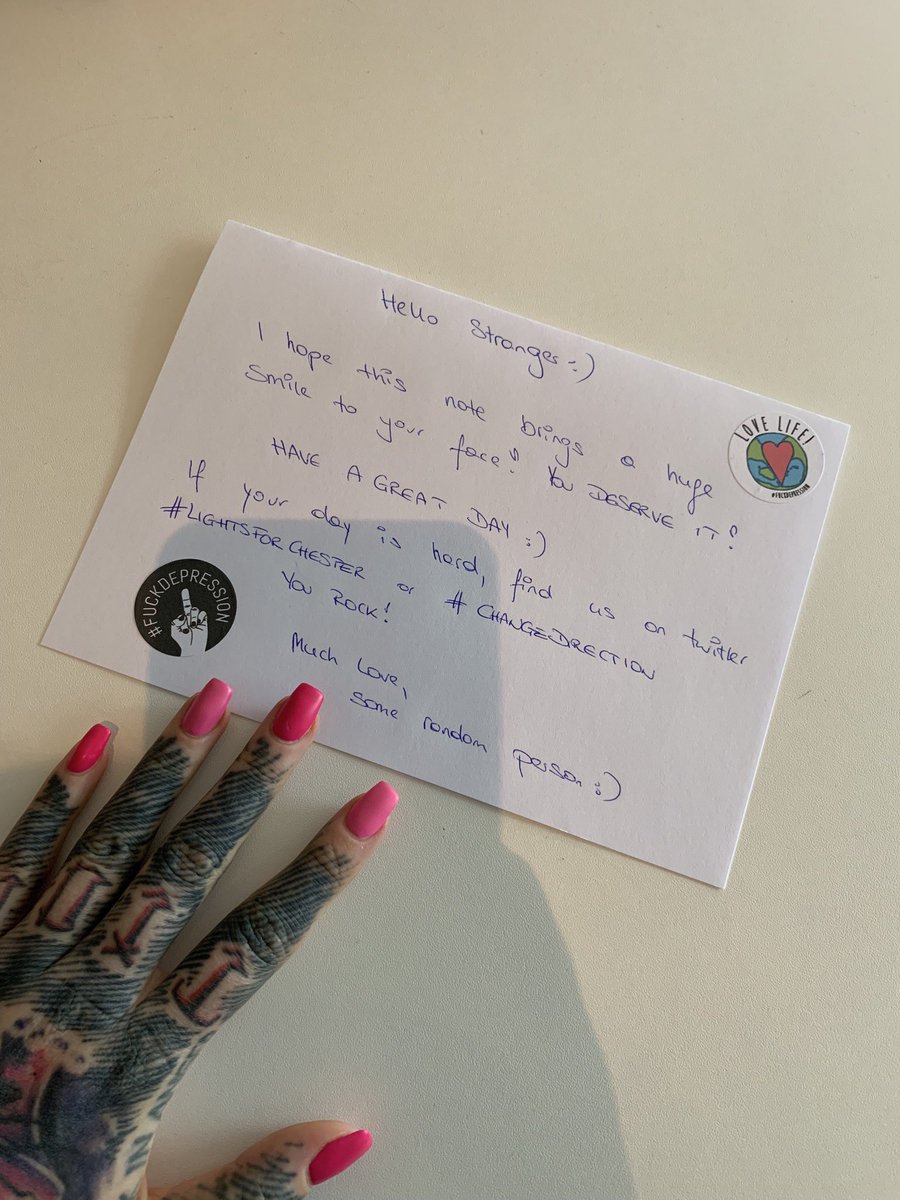 Hello Stranger :)
I hope this note brings a huge
smile to your face! YOU DESERVE IT!
HAVE A GREAT DAY :)
If your day is hard, find us on twitter
#LIGHTSFORCHESTER or #CHANGEDIRECTION
YOU ROCK!
Much Love,
some random person :)
LOVE LIFE!
#FUCKDEPRESSION
#FUCKDEPRESSION